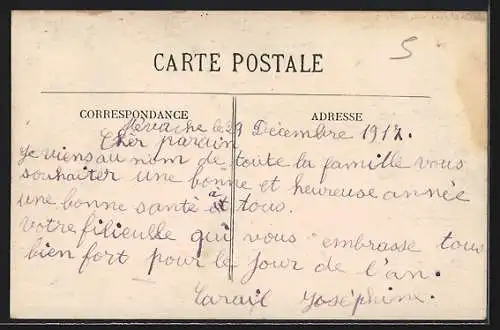 5
CARTE POSTALE
CORRESPONDANCE
ADRESSE
Névache le 29 Décembre 1917.
Chèr parain
Je viens au nom de toute la famille vous
souhaiter une bonne et heureuse année
une bonne santé à tous.
votre filieulle qui vous embrasse tous
bien fort pour le Jour de l'an.
Joséphine.